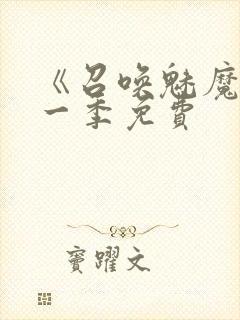 《召唤魅魔
一季免费
窦躍文